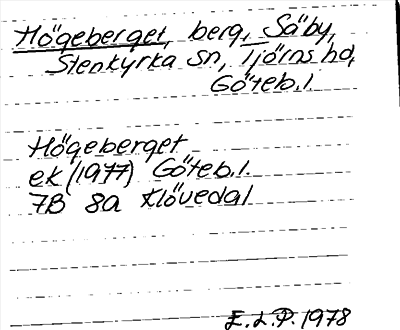 Högeberget, berg, Säby,
Stenkyrka sn, Tjörns hd,
Göteb.l.
Högeberget
ek (1977) Göteb.l.
7B 8a Klövedal
E.L.P. 1978